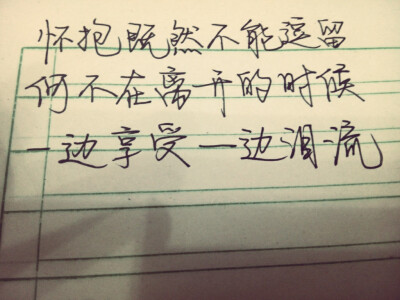 怀抱既然不能逗留
何不在离开的时候
一边享受一边泪流